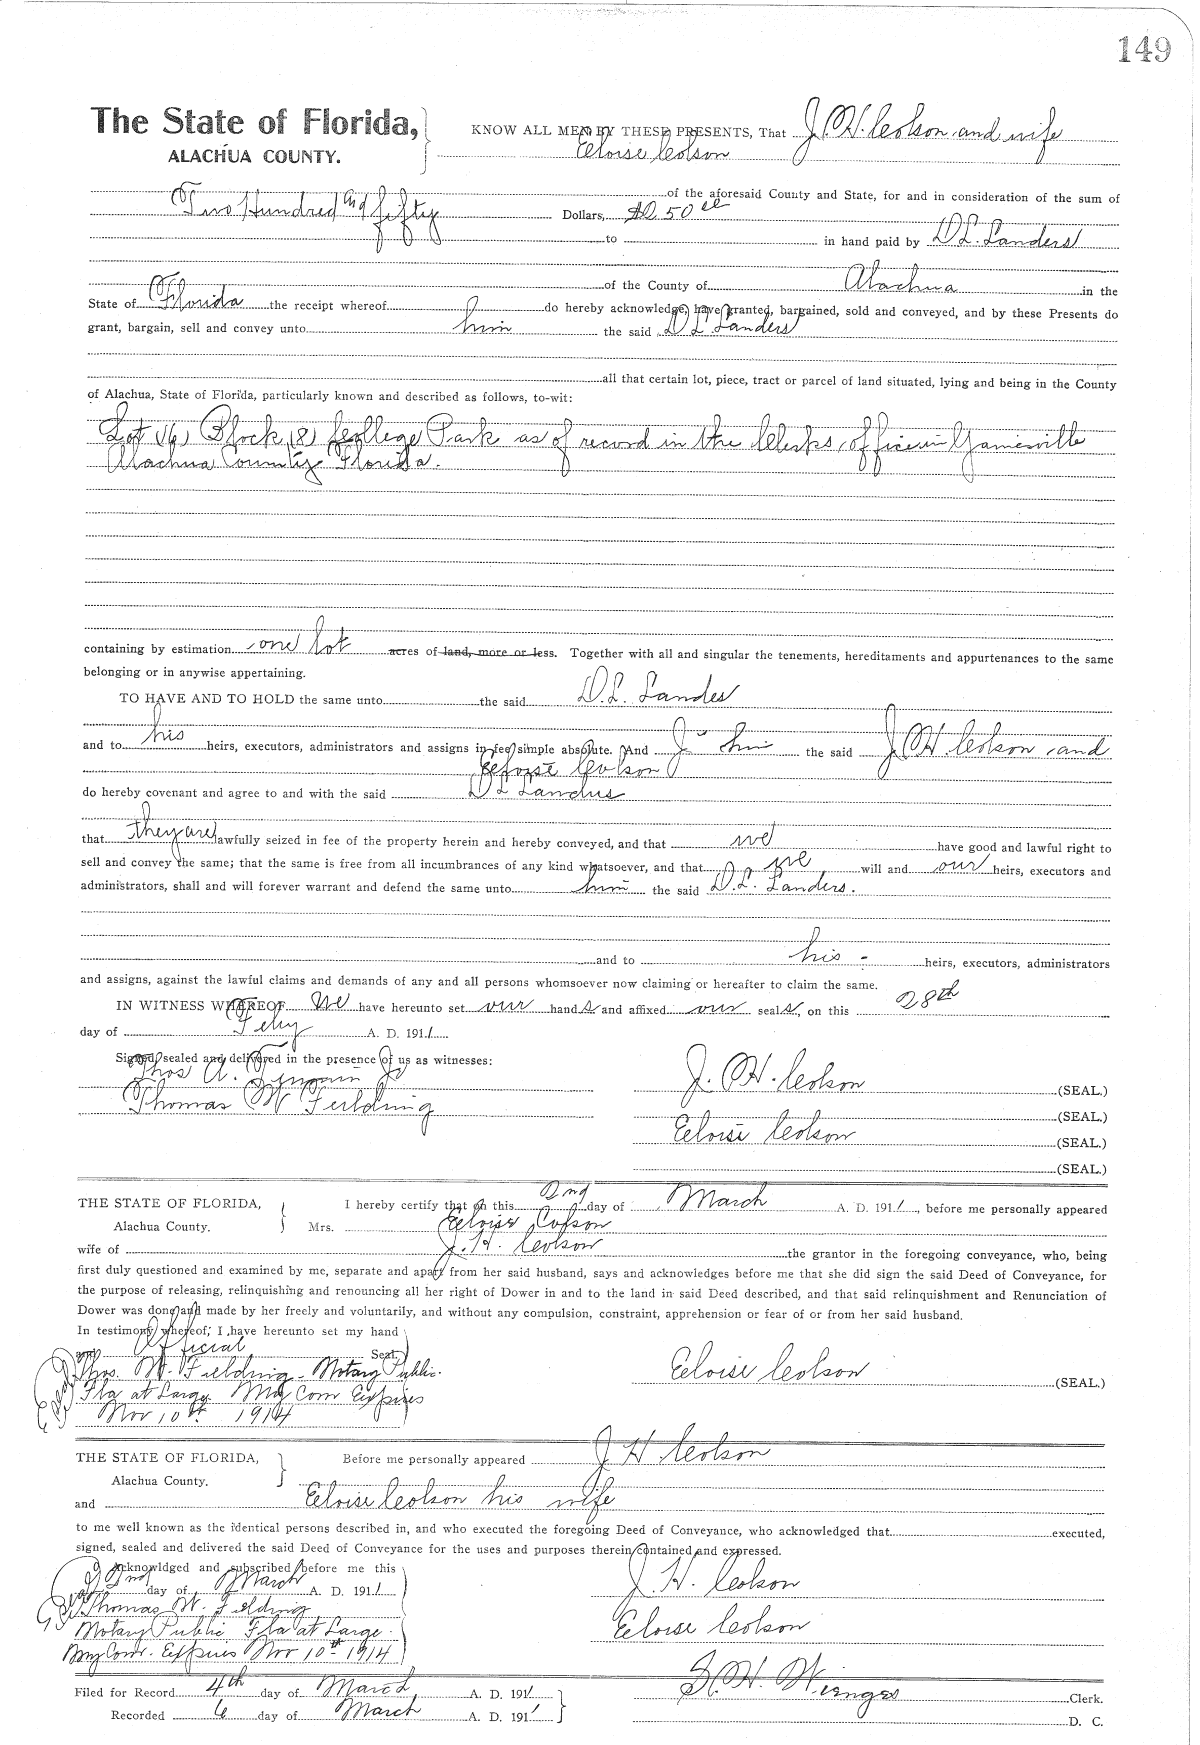 149
The State of Florida, KNOW ALL MEN BY THESE PRESENTS, That J. H. Colson and wife
ALACHUA COUNTY. Eloise Colson
of the aforesaid County and State, for and in consideration of the sum of
Two Hundred and fifty Dollars, $250
to in hand paid by D L. Landers
of the County of Alachua in the
State of Florida the receipt whereof do hereby acknowledge, have granted, bargained, sold and conveyed, and by these Presents do
grant, bargain, sell and convey unto him the said D L Landers
all that certain lot, piece, tract or parcel of land situated, lying and being in the County
of Alachua, State of Florida, particularly known and described as follows, to-wit:
Lot (6) Block (8) College Park as of record in the Clerks office in Gainesville
Alachua County Florida.
containing by estimation one lot acres of land, more or less. Together with all and singular the tenements, hereditaments and appurtenances to the same
belonging or in anywise appertaining.
TO HAVE AND TO HOLD the same unto the said D. L. Landes
and to his heirs, executors, administrators and assigns in fee simple absolute. And the said J H Colson and
Eloise Colson
do hereby covenant and agree to and with the said D L Landers
that they are lawfully seized in fee of the property herein and hereby conveyed, and that we have good and lawful right to
sell and convey the same; that the same is free from all incumbrances of any kind whatsoever, and that we will and our heirs, executors and
administrators, shall and will forever warrant and defend the same unto him the said D. L. Landers.
and to his - heirs, executors, administrators
and assigns, against the lawful claims and demands of any and all persons whomsoever now claiming or hereafter to claim the same.
IN WITNESS WHEREOF We have hereunto set our hands and affixed our seals, on this 28th
day of Feby A. D. 1911
Signed, sealed and delivered in the presence of us as witnesses:
Thos A. Jr J. H. Colson (SEAL.)
Thomas W Fielding (SEAL.)
Eloise Colson (SEAL.)
(SEAL.)
THE STATE OF FLORIDA, I hereby certify that on this 2nd day of March A. D. 1911, before me personally appeared
Alachua County. Mrs. Eloise Colson
wife of J. H. Colson the grantor in the foregoing conveyance, who, being
first duly questioned and examined by me, separate and apart from her said husband, says and acknowledges before me that she did sign the said Deed of Conveyance, for
the purpose of releasing, relinquishing and renouncing all her right of Dower in and to the land in said Deed described, and that said relinquishment and Renunciation of
Dower was done and made by her freely and voluntarily, and without any compulsion, constraint, apprehension or fear of or from her said husband.
In testimony whereof, I have hereunto set my hand
and Official Seal.
Thos. W. Fielding - Notary Public. Eloise Colson (SEAL.)
Fla at Large My Com Expires
Nov 10th 1914
THE STATE OF FLORIDA, Before me personally appeared J H Colson
Alachua County.
and Eloise Colson his wife
to me well known as the identical persons described in, and who executed the foregoing Deed of Conveyance, who acknowledged that executed,
signed, sealed and delivered the said Deed of Conveyance for the uses and purposes therein contained and expressed.
Acknowldged and subscribed before me this
2nd day of March A. D. 1911 J. H. Colson
Thomas W. Fielding
Notary Public Fla at Large. Eloise Colson
My Com. Expires Nov 10th 1914
Filed for Record 4th day of March A. D. 1911 S. H. Wienges Clerk.
Recorded 6 day of March A. D. 1911 D. C.